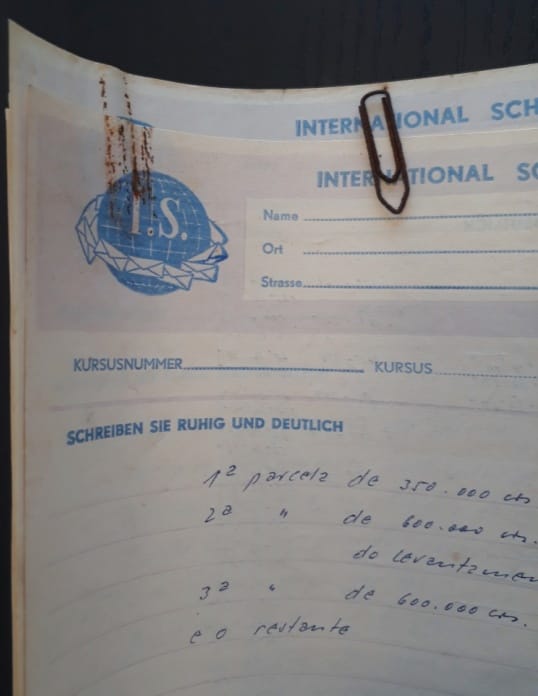 INTERNATIONAL SCH
INTERNATIONAL SC
I.S.
Name
Ort
Strasse
KURSUSNUMMER KURSUS
SCHREIBEN SIE RUHIG UND DEUTLICH
1ª parcela de 350.000 crs
2ª " de 600.000 crs.
do levantamen
3ª " de 600.000 crs.
e o restante